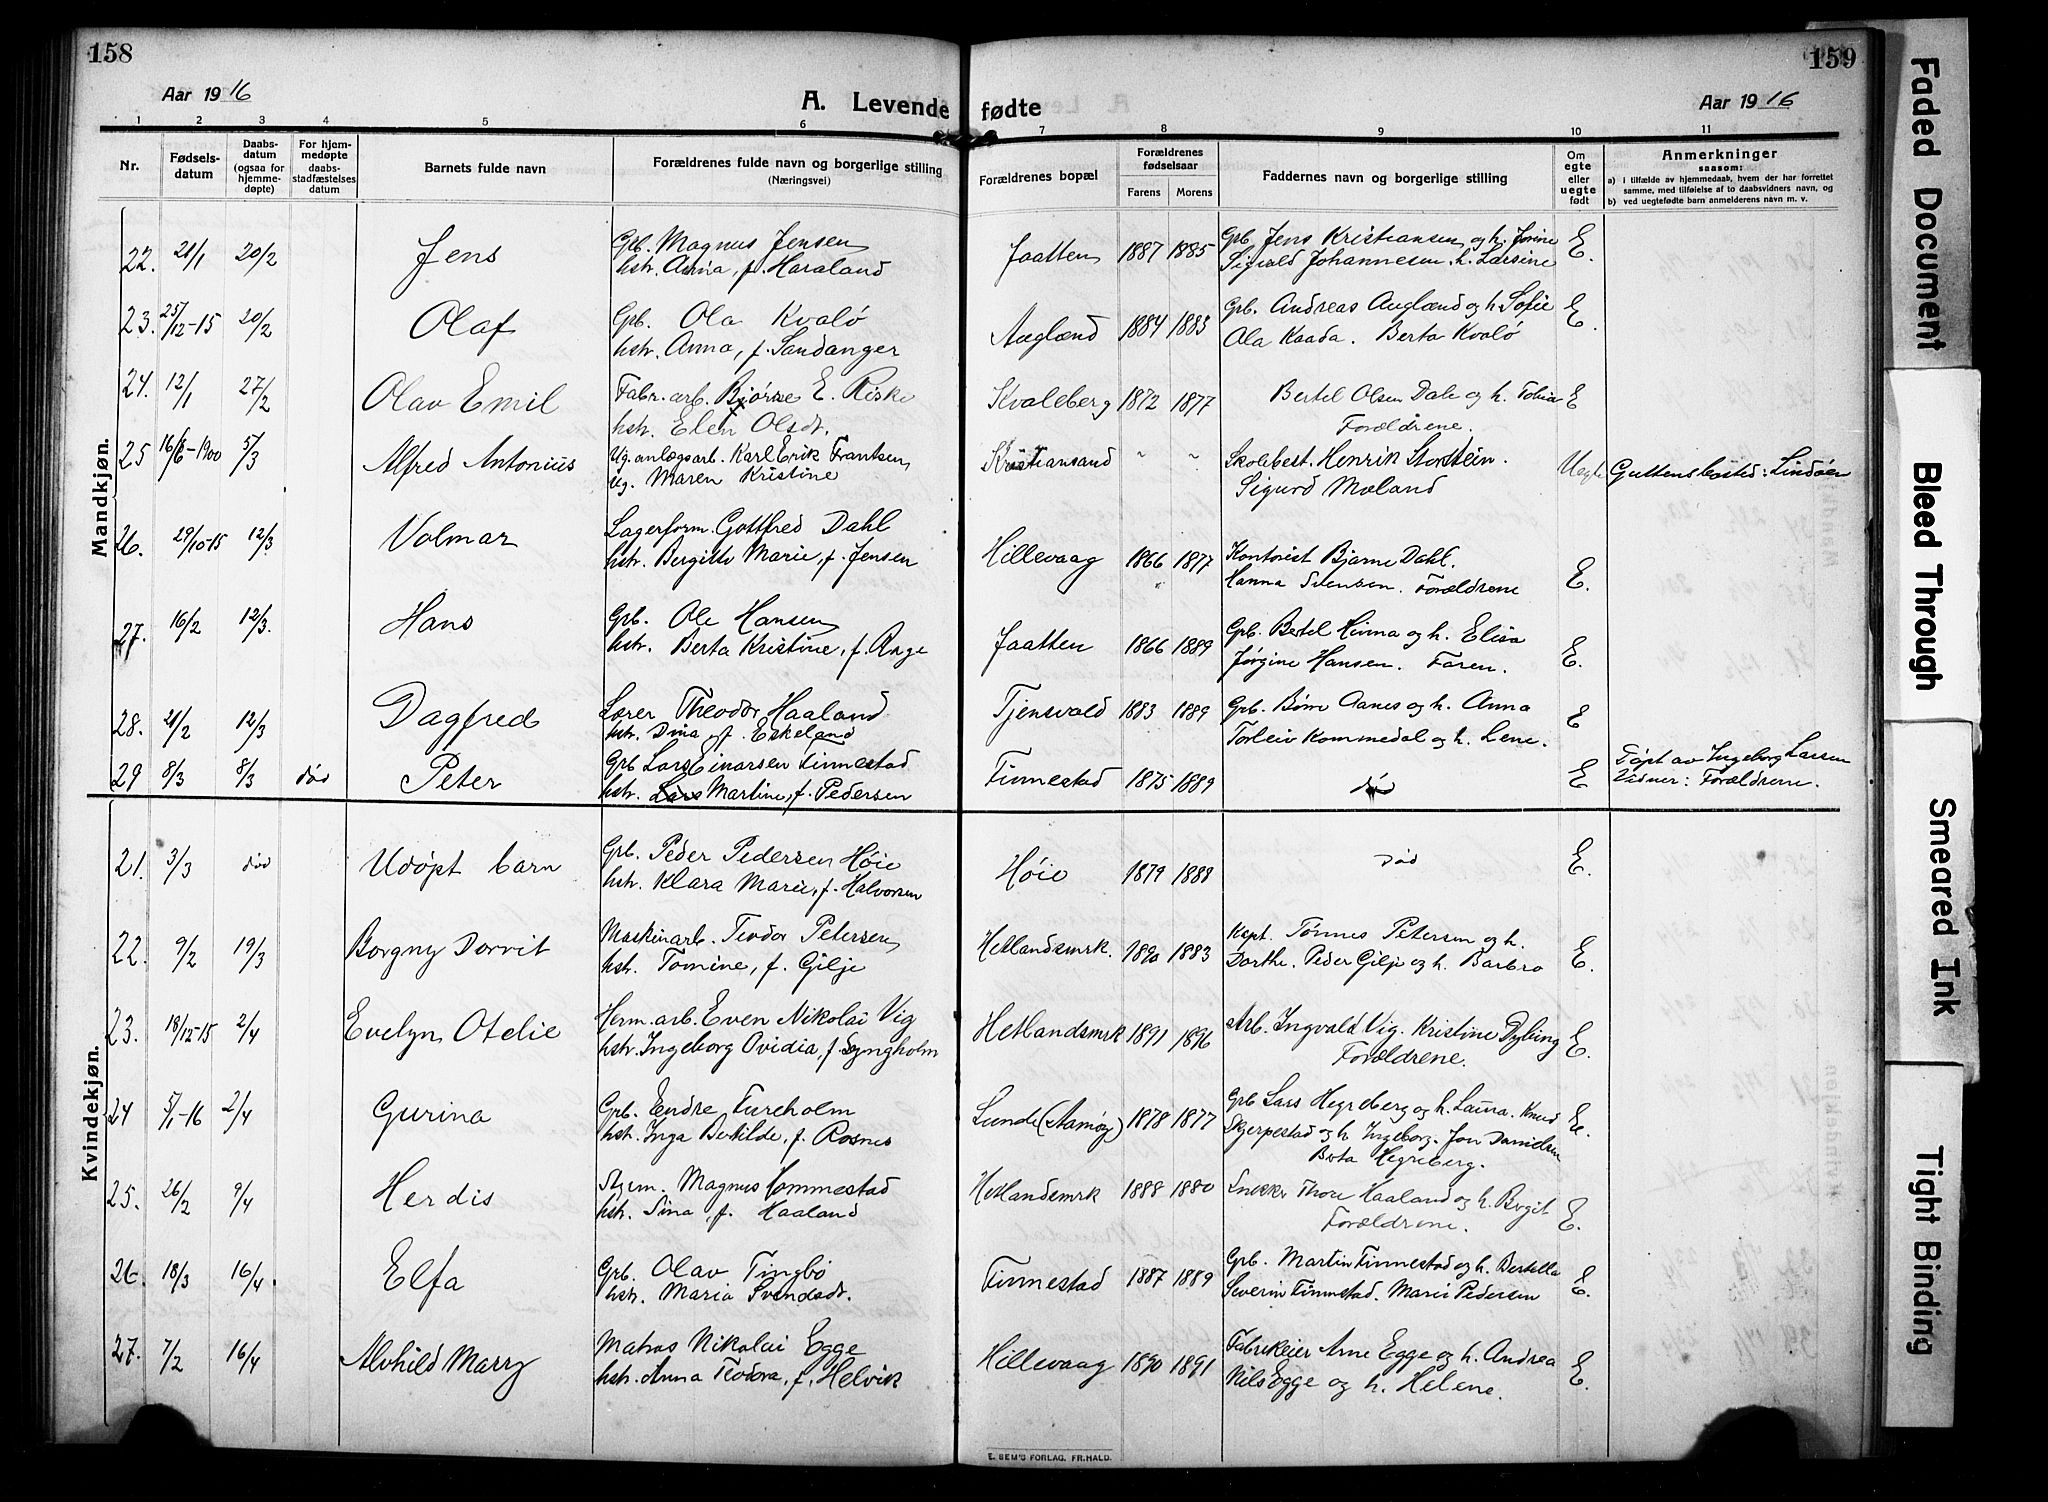 158
159
Aar 1916
A. Levende fødte
Aar 1916
1 2 3 4 5 6 7 8 9 10 11
Nr.
Fødsels-
datum
Daabs-
datum
(ogsaa for
hjemme-
døpte)
For hjem-
medøpte
daabs-
stadfæstelses
datum
Barnets fulde navn
Forældrenes fulde navn og borgerlige stilling
(Næringsvei)
Forældrenes bopæl
Forældrenes
fødselsaar
Farens Morens
Faddernes navn og borgerlige stilling
Om
egte
eller
uegte
født
Anmerkninger
saasom:
a) i tilfælde av hjemmedaab, hvem der har forrettet
samme, med tilføielse af to daabsvidners navn, og
b) ved uegtefødte barn anmelderens navn m. v.
Mandkjøn.
22. 21/1 20/2 Jens
Gb. Magnus Jensen
hstr. Anna, f. Haraland
Jaatten 1887 1885
Gb. Jens Kristiansen og h. Jorine
Sigvald Johannesen. h. Larsine
E.
23. 25/12-15 20/2 Olaf
Gb. Ola Kvalö
hstr. Anna, f. Sandanger
Auglænd 1884 1883
Gb. Andreas Auglænd og h. Sofie
Ola Kaada. Berta Kvalö
E.
24. 12/1 27/2 Olav Emil
Fabr. arb. Bjørne E. Riske
hstr. Elen Olsdt.
Kvaleberg 1872 1877
Bertel Olsen Dale og h. Tobia
Forældrene.
E
25 16/6-1900 5/3 Alfred Antonius
Ug. anlægsarb. Karl Erik Frantsen
ug. Maren Kristine
Kristiansand " "
Skolebest. Henrik Storstein.
Sigurd Moland
Uegte
Guttens bosted: Lindøen
26. 29/10-15 12/3 Volmar
Lagerform. Gottfred Dahl
hstr. Bergitte Marie, f. Jensen
Hillevaag 1866 1877
Kontorist Bjarne Dahl.
Hanna Svensen. Forældrene
E.
27. 16/2 12/3. Hans
Gb. Ole Hansen
hstr. Berta Kristine, f. Rage
Jaatten 1866 1889
Gb. Bertel Hinna og h. Elisa
Jørgine Hansen. Faren.
E.
28. 21/2 12/3 Dagfred
Lærer Theodor Haaland
hstr. Dina, f. Eskeland
Tjensvold 1883 1889
Gb. Børre Aanes og h. Anna
Torleiv Kommedal og h. Lene.
E
29 8/3 8/3 død Peter
Gb Lars Einarsen Finnestad
hstr. Martine, f. Pedersen
Finnestad 1875 1889
død
E
Døpt av Ingeborg Larsen
Vidner: Forældrene.
Kvindekjøn.
21. 3/3 død Udøpt barn
Gb. Peder Pedersen Høie
hstr. Klara Marie, f. Halvorsen
Høie 1879 1888
død
E.
22. 9/2 19/3 Borgny Dorvit
Maskinarb. Teodor Petersen
hstr. Tomine, f. Gilje
Hetlandsmrk. 1890 1883
Kapt. Tønnes Petersen og h.
Dorthe. Peder Gilje og h. Barbro
E.
23. 18/12-15 2/4 Evelyn Otelie
Herm. arb. Even Nikolai Vig
hstr. Ingeborg Ovidia, f. Lyngholm
Hetlandsmrk 1891 1896
Arb. Ingvald Vig. Kristine Dybing
Forældrene.
E.
24 5/1-16 2/4 Gurina
Gb. Endre Tureholm
hstr. Inga Botilde, f. Rosnes
Lunde (Aamøy) 1878 1877
Gb Lars Hegreberg og h. Launa. Knud
Skjerpestad og h Ingeborg. Jon Danielsen
Berta Hegreberg.
E.
25. 26/2 9/4 Herdis
Stjern. Magnus Hommestad
hstr. Sina, f. Haaland
Hetlandsmrk 1888 1880
Snekker Thore Haaland og h. Birgit
Forældrene.
E.
26. 18/3 16/4. Elfa
Gb. Olav Tingbø
hstr. Maria Svendsdt.
Finnestad 1887 1889
Gb. Martin Finnestad og h. Bertella
Severin Finnestad. Marie Pedersen
E.
27. 7/2 16/4 Alvhild Marry
Matros Nikolai Egge
hstr. Anna Teodora, f. Helvik
Hillevaag 1890 1891
Fabrikeier Arne Egge og h. Andrea
Nils Egge og h. Helene.
E.
E. SEM'S FORLAG, FR.HALD.
Faded Document
Bleed Through
Smeared Ink
Tight Binding